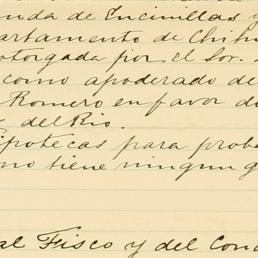 nda de Encinillas y
artamento de Chihu
otorgada por el Sor.
como apoderado de
Romero en favor de
del Rio.
ipotecas para proba
no tiene ningun g
al Fisco y del Con